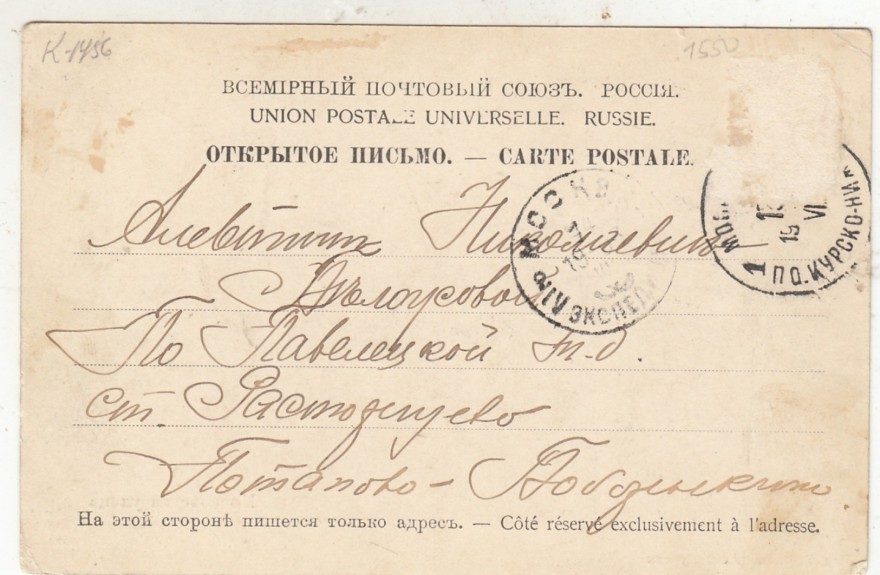 К-1456
1550
ВСЕМІРНЫЙ ПОЧТОВЫЙ СОЮЗЪ. РОССІЯ.
UNION POSTALE UNIVERSELLE. RUSSIE.
ОТКРЫТОЕ ПИСЬМО. — CARTE POSTALE.
МОСКВА
ЭКСПЕД
1 П.О. КУРСКО-НИЖ
19 VI
Николаевичъ
По Павелецкой ж-д.
ст. Расторгуево
Потапово —
На этой сторонѣ пишется только адресъ. — Côté réservé exclusivement à l'adresse.